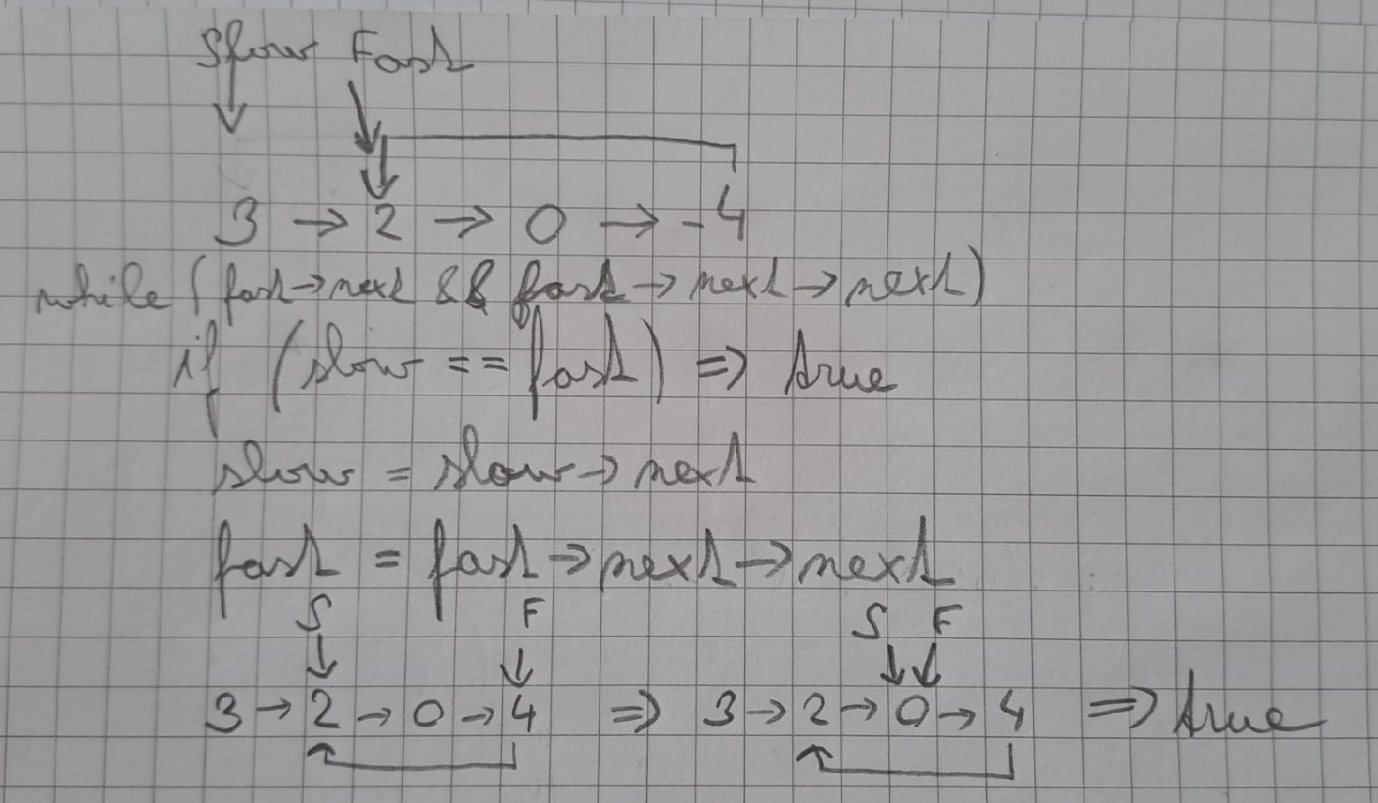 Slow Fast
3 → 2 → 0 → -4
while (fast→next && fast→next→next)
if (slow == fast) => true
slow = slow→next
fast = fast→next→next
S F S F
3→2→0→4 => 3→2→0→4 => true